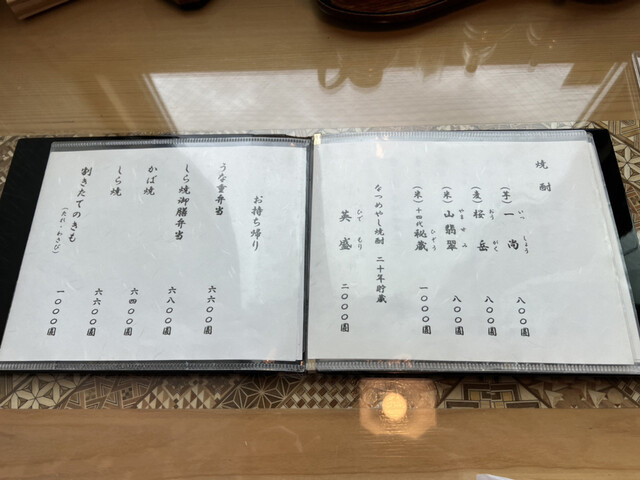 焼酎
(芋)一尚 いっしょう 八〇〇圓
(麦)桜岳 おうがく 八〇〇圓
(米)山翡翠 やませみ 八〇〇圓
(米)十四代秘蔵 ひぞう 一〇〇〇圓
なつめやし焼酎 二十年貯蔵
英盛 ひでもり 二〇〇〇圓
お持ち帰り
うな重弁当 六六〇〇圓
しら焼御膳弁当 六八〇〇圓
かば焼 六四〇〇圓
しら焼 六六〇〇圓
割きたてのきも (たれ・わさび) 一〇〇〇圓